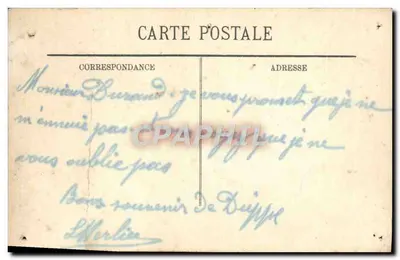 CARTE POSTALE
CORRESPONDANCE
ADRESSE
Monsieur Durand je vous promet que je ne
m'ennuie pas que je ne
vous oublie pas
Bons souvenir de Dieppe
LMerlier
CPAPHIL